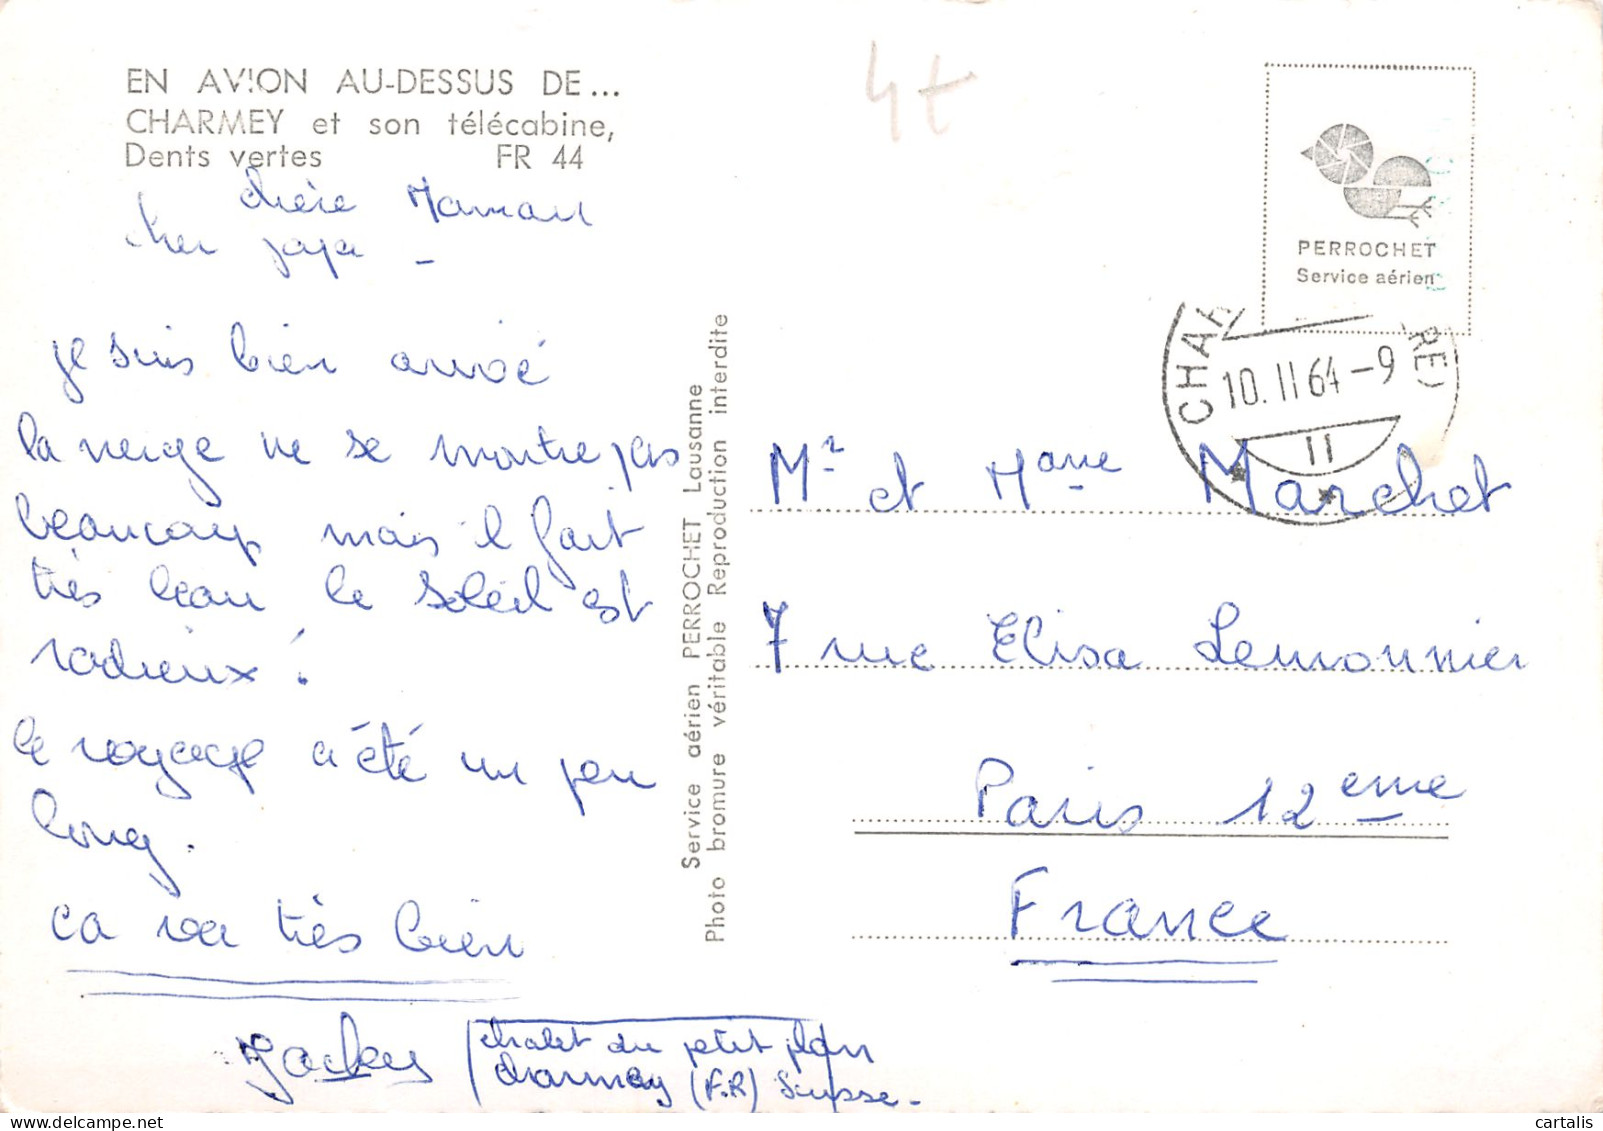 EN AVION AU-DESSUS DE...
CHARMEY et son télécabine,
Dents vertes FR 44
chère Maman
cher papa -
je suis bien arrivé
la neige ne se montre pas
beaucoup mais il fait
très beau le soleil est
radieux !
le voyage a été un peu
long.
ça va très bien
chalet du petit plan
charmey (F.R) Suisse-
Service aérien PERROCHET Lausanne
Photo bromure véritable Reproduction interdite
4t
PERROCHET
Service aérien
CHAR RE)
10.II 64-9
II
Mr et Mme Marchet
7 rue Elisa Lemonnier
Paris 12eme
France
cartalis